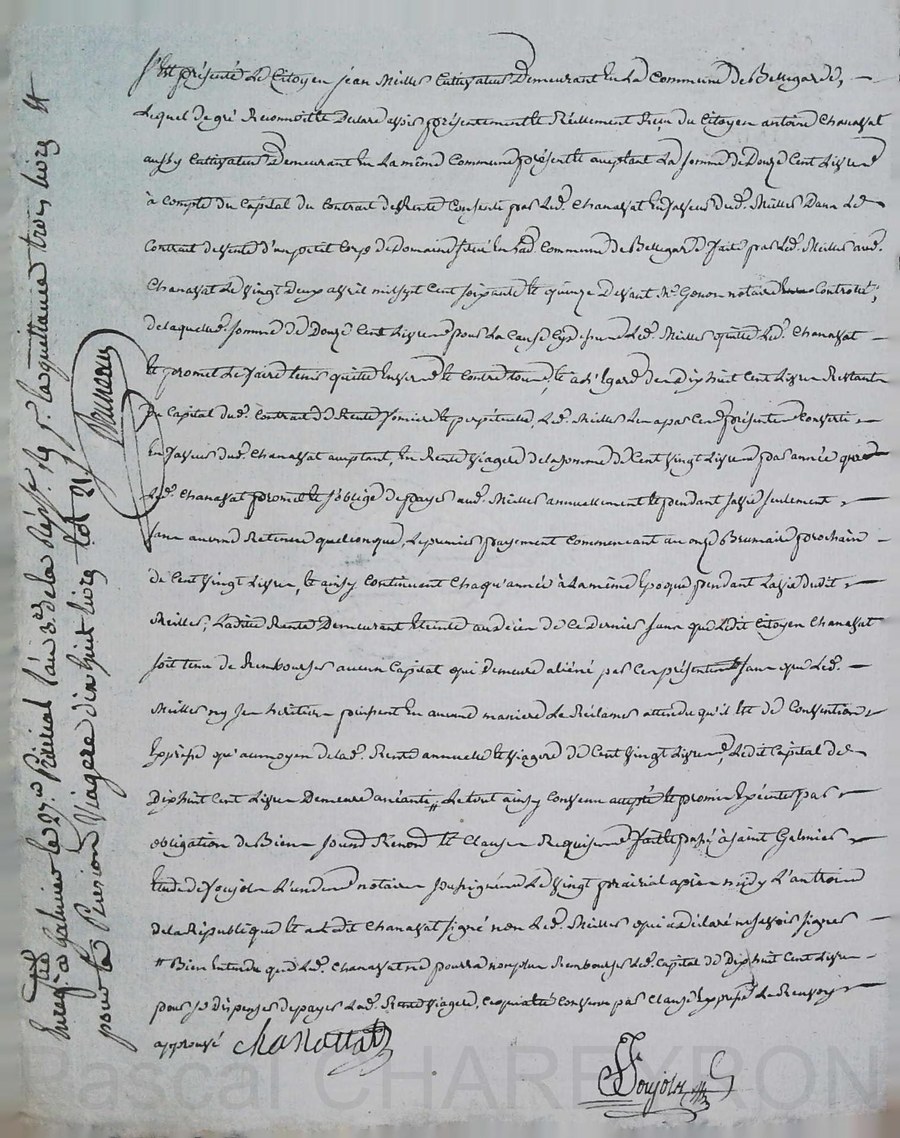 S'est présenté Le Citoyen jean Meilles Cultivateur Demeurant En La Commune de Bellegarde,
Lequel de gré Reconnoit et Declare avoir présentement et Réellement Reçu du Citoyen antoine Chanassat
aussy Cultivateur Demeurant En La même Commune présent et acceptant La somme de Douze Cent Livres
à compte du Capital du Contrat de Rente Consenti par Led. Chanassat En faveur dud. Meilles Dans Led.
Contrat de Vente d'un petit Corps de Domaine situé En lad. Commune de Bellegarde fait par Led. Meilles aud.
Chanassat Le Vingt Deux avril mil sept Cent soixante et quinze Devant Me Genon notaire Controlé;
de laquelle somme de Douze Cent Livres pour La Cause Cy dessus Led. Meilles quitte Led. Chanassat
et promet Le faire tenir quitte Envers et Contre tous, et à L'Egard des Dix huit Cent Livres Restants
Du Capital dud. Contrat de Rente fonciere et perpetuelle, Led. Meilles Les a par Ces présentes Converti
En faveur dud. Chanassat acceptant, En Rente Viagere de la somme de Cent Vingt Livres par année que
Led. Chanassat promet et s'oblige de payer aud. Meilles annuellement et pendant sa Vie seulement
sans aucune Retenue quelconque, Le premier payement Commencant au onze Brumaire prochain
de Cent Vingt Livres, et ainsy Continuant Chaqu'année à La même Epoque pendant La Vie dudit
Meilles, Ladite Rente Demeurant Eteinte au décès de Ce Dernier sans que Ledit Citoyen Chanassat
soit tenu de Rembourser aucun Capital qui Demeure aliéné par Ces présentes et sans que Led.
Meilles ny ses héritiers puissent En aucune maniere Le Réclamer attendu qu'il Est de Convention
Expresse qu'au moyen de lad. Rente annuelle et Viagere de Cent Vingt Livres, Ledit Capital de
Dix huit Cent Livres Demeure anéanti // Le tout ainsy Convenu accepté et promis Exécuter par
obligation de Biens soumd. Renond. et Clauses Requises fait et passé à saint Galmier
Etude de Soujols L'un des notaires soussignés Le Vingt prairial après midy L'an trois
de la République et a Ledit Chanassat signé non Led. Meilles qui a déclaré ne savoir signer
// Bien Entendu que Led. Chanassat ne pourra non plus Rembourser Led. Capital de Dix huit Cent Livres
pour se dispenser de payer Lad. Rente Viagere, Ce qui a été Convenu par Clause Expresse Le Renvoy
approuvé Chanattat
Soujols
Enregtré à Galmier le 27e Prairial l'an 3e de la Répe. la quittance trois livres et
pour la Pension Viagere dix huit livres tot 21
Pascal CHAREYRON